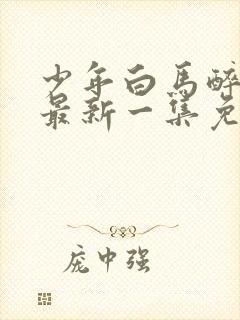 少年白马醉
最新一集免
庞中强